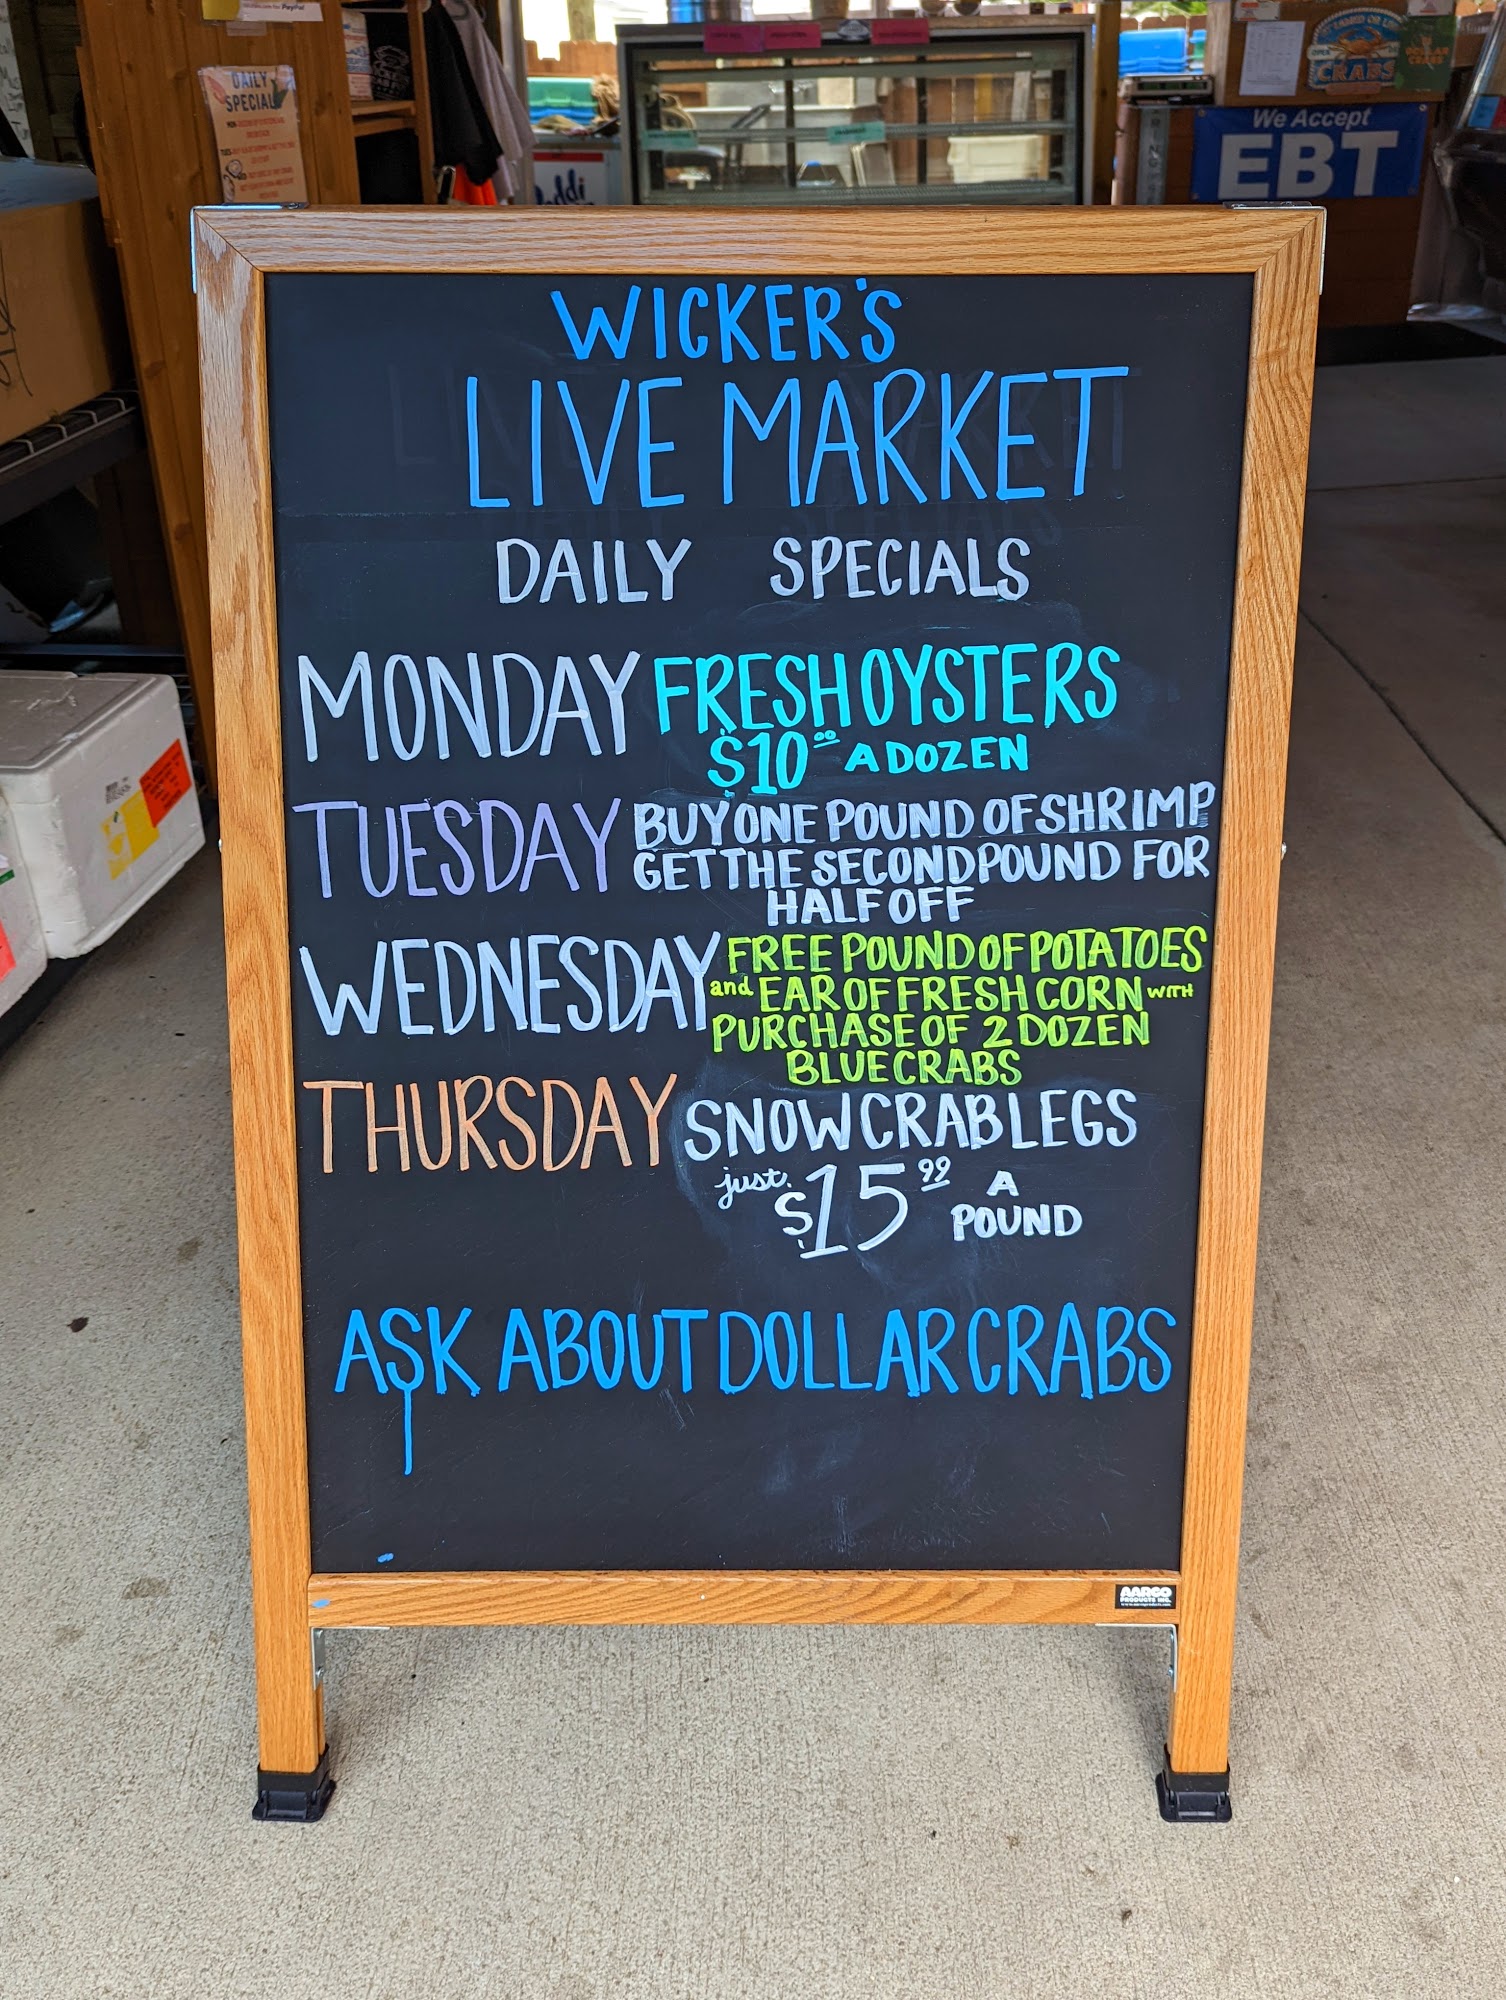 PayPal
DAILY
SPECIAL
We Accept
EBT
CRABS
WICKER'S
LIVE MARKET
DAILY SPECIALS
MONDAY FRESH OYSTERS
$10.00 A DOZEN
TUESDAY BUY ONE POUND OF SHRIMP
GET THE SECOND POUND FOR
HALF OFF
WEDNESDAY FREE POUND OF POTATOES
and EAR OF FRESH CORN WITH
PURCHASE OF 2 DOZEN
BLUE CRABS
THURSDAY SNOW CRAB LEGS
just $15.99 A
POUND
ASK ABOUT DOLLAR CRABS
AARCO
PRODUCTS INC.